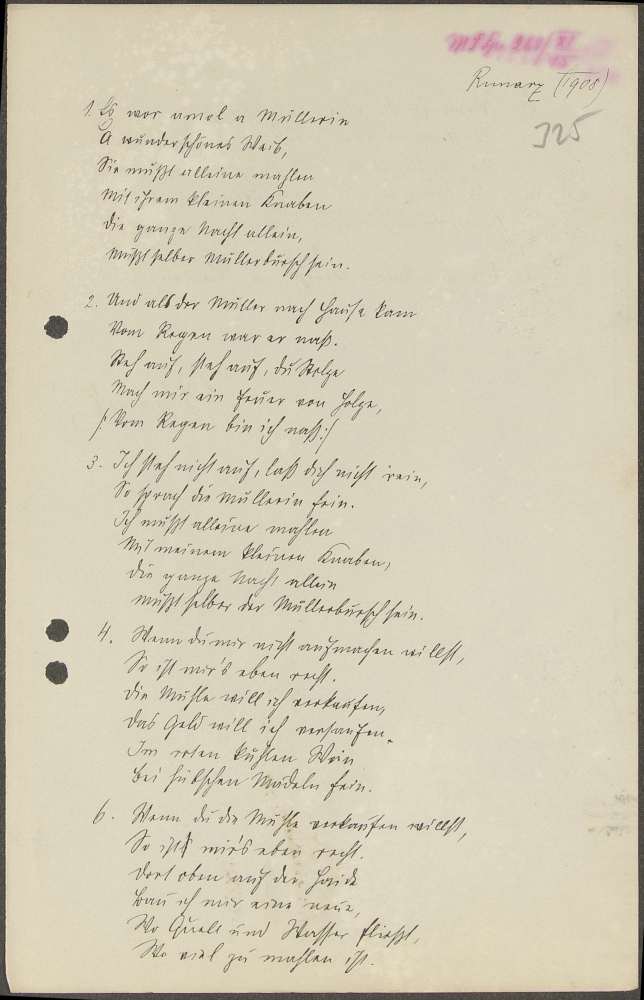 Runarz (1908)
325
1. Es wor amol a Müllerin
A wunderschönes Weib,
Sie mußt alleine mahlen
Mit ihrem kleinen Knaben
Die ganze Nacht allein,
Mußt selber Müllerbursch sein.
2. Und als der Müller nach Hause kam
Vom Regen war er naß.
Steh auf, steh auf, du Stolze
Mach mir ein Feuer von Holze,
/: Vom Regen bin ich naß :/
3. Ich steh nicht auf, laß dich nicht 'rein,
So sprach die Müllerin fein.
Ich mußt alleine mahlen
Mit meinem kleinen Knaben,
Die ganze Nacht allein
Mußt selber der Müllerbursch sein.
4. Wenn du mir nicht aufmachen willst,
So ist mir's eben recht.
Die Mühle will ich verkaufen,
Das Geld will ich versaufen.
Im roten kühlen Wein
Bei hübschen Mädeln fein.
6. Wenn du die Mühle verkaufen willst,
So ist mir's eben recht.
Dort oben auf der Haide
Bau ich mir eine neue,
Wo Quell und Wasser fließt,
Wo viel zu mahlen ist.